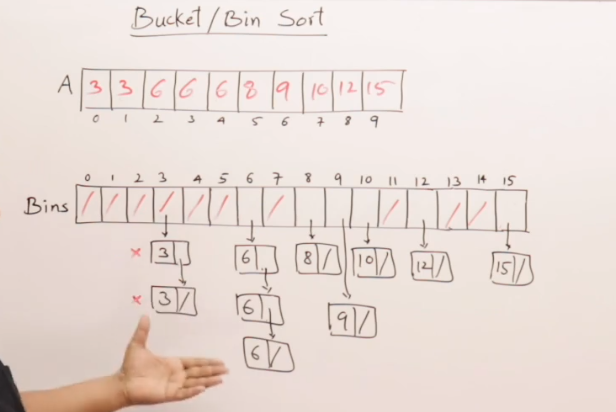 Bucket/Bin Sort
A 3 3 6 6 6 8 9 10 12 15
0 1 2 3 4 5 6 7 8 9
0 1 2 3 4 5 6 7 8 9 10 11 12 13 14 15
Bins / / / / / / / / / /
× 3 6 8 / 10 / 12 / 15 /
× 3 / 6 9 /
6 /